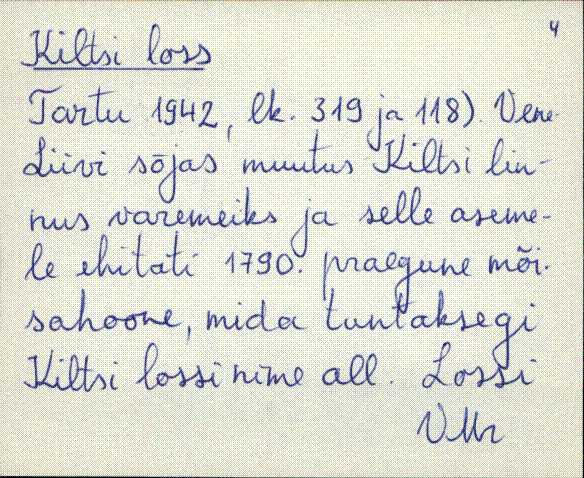 4
Kiltsi loss
Tartu 1942, lk. 319 ja 118). Vene-
Liivi sõjas muutus Kiltsi lin-
nus varemeiks ja selle aseme-
le ehitati 1790. praegune mõi-
sahoone, mida tuntaksegi
Kiltsi lossi nime all. Lossi